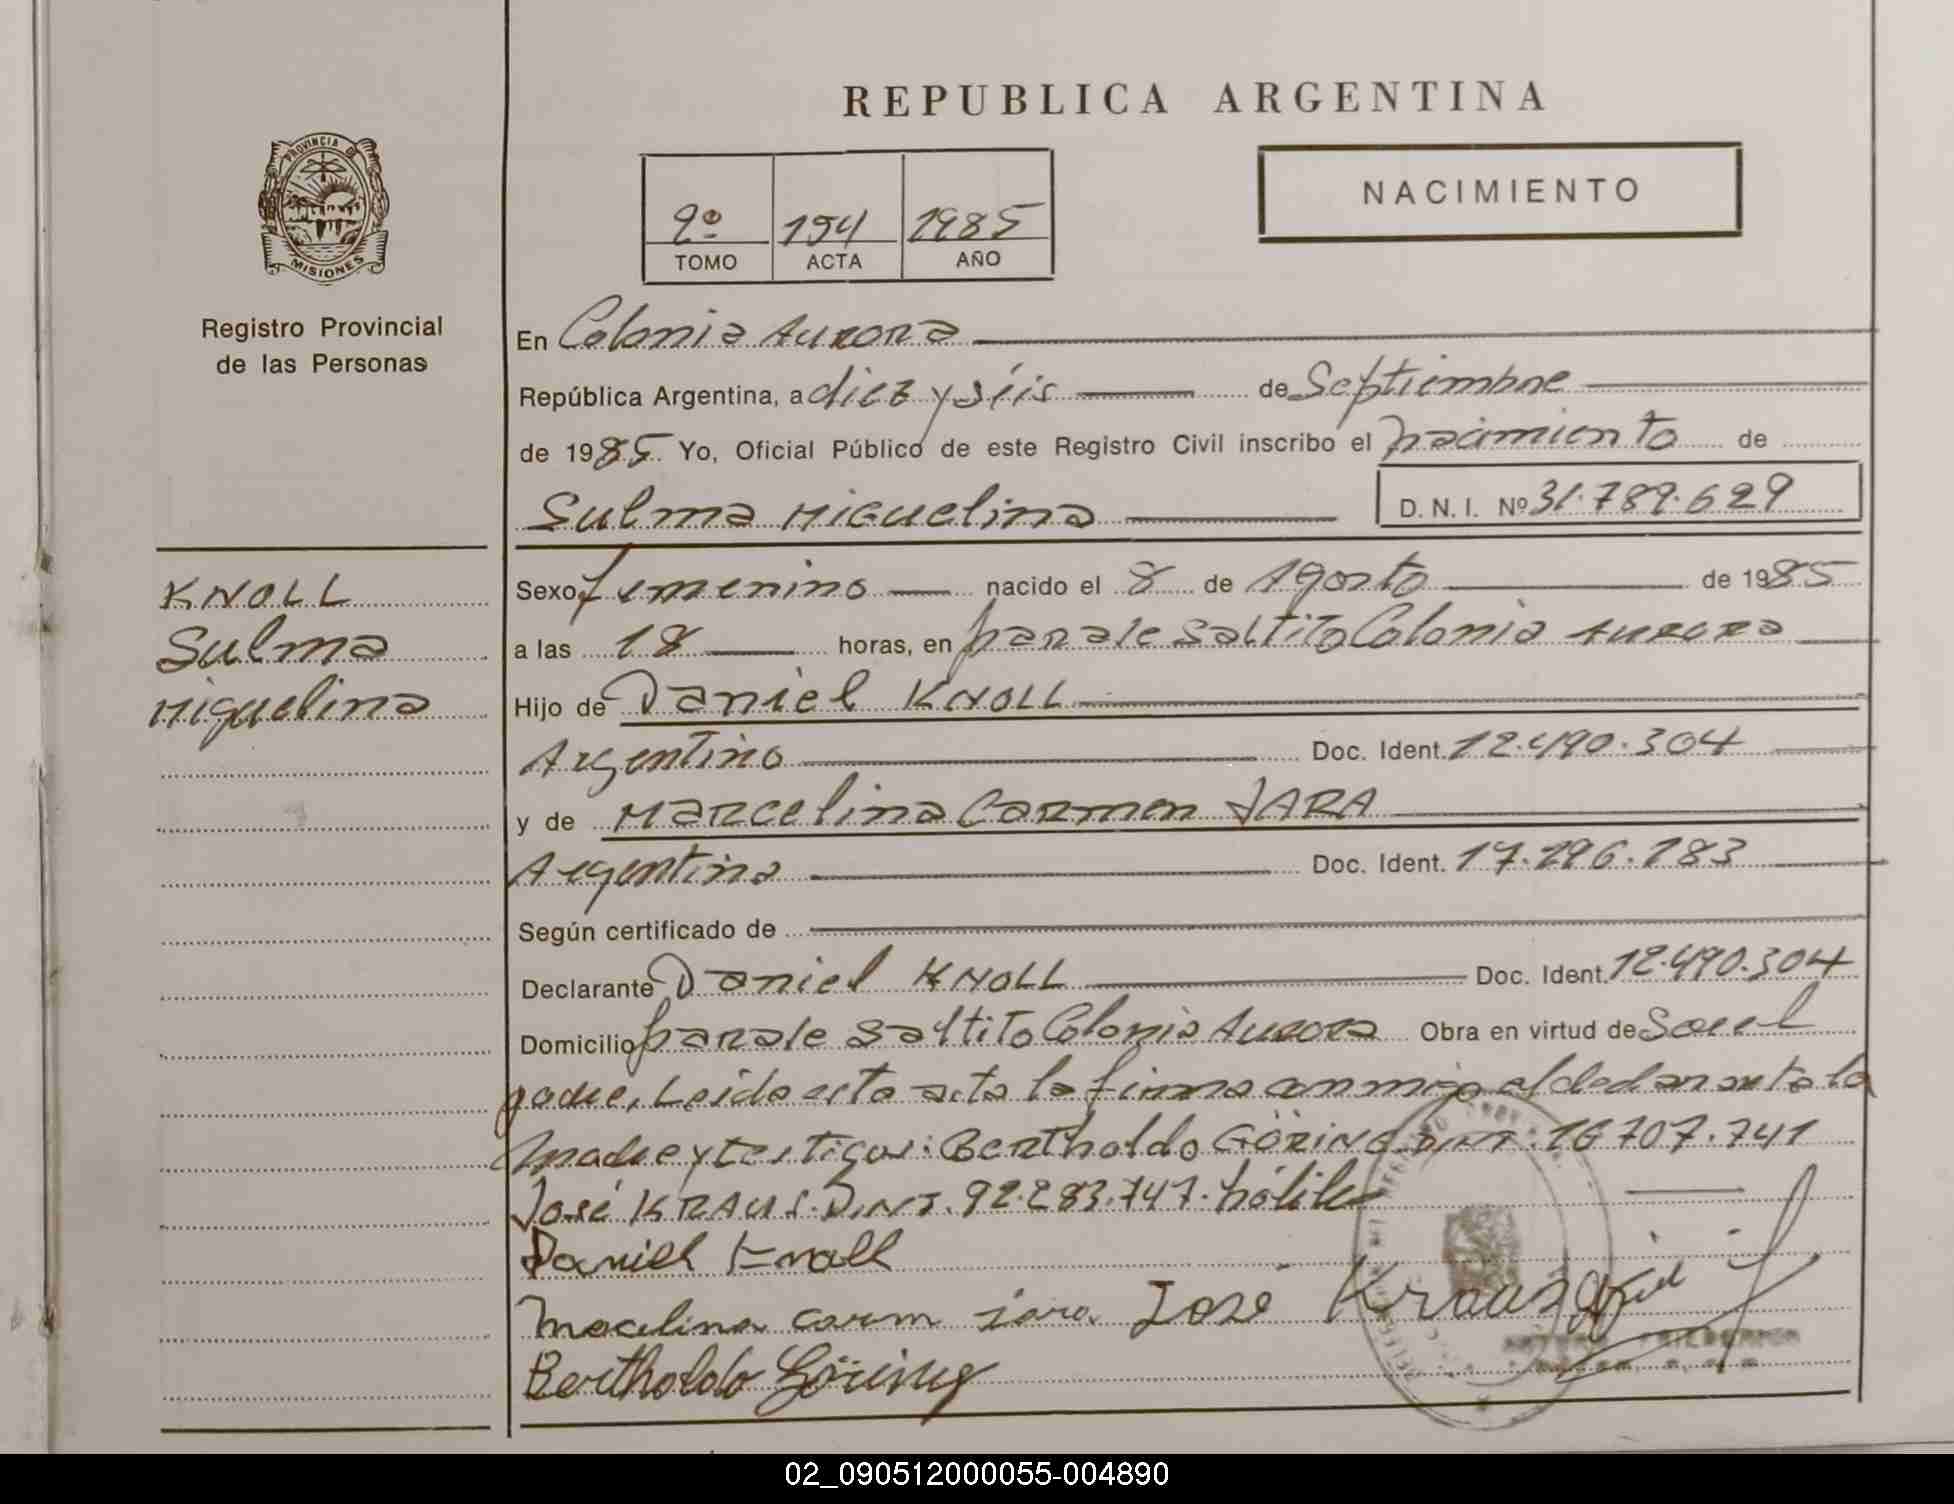 REPUBLICA ARGENTINA
PROVINCIA DE
MISIONES
Registro Provincial
de las Personas
2º 194 1985
TOMO ACTA AÑO
NACIMIENTO
En Colonia Aurora
República Argentina, a diez y séis de Septiembre
de 1985. Yo, Oficial Público de este Registro Civil inscribo el nacimiento de
Sulma Miguelina
D. N. I. Nº 31.789.629
KNOLL
Sulma
Miguelina
Sexo femenino nacido el 8 de Agosto de 1985
a las 18 horas, en paraje Saltito Colonia Aurora
Hijo de Daniel KNOLL
Argentino Doc. Ident. 12.490.304
y de Marcelina Carmen JARA
Argentina Doc. Ident. 17.296.183
Según certificado de
Declarante Daniel KNOLL Doc. Ident. 12.490.304
Domicilio paraje Saltito Colonia Aurora Obra en virtud de Ser el
padre. Leida esta acta la firma conmigo el declarante la
madre y testigos: Bertholdo GÖRING D.N.I. 16.707.741
José KRAUS. D.N.I. 92.283.747.
Daniel Knoll
Marcelina carm jara. José Kraus
Bertholdo Göring
02_090512000055-004890